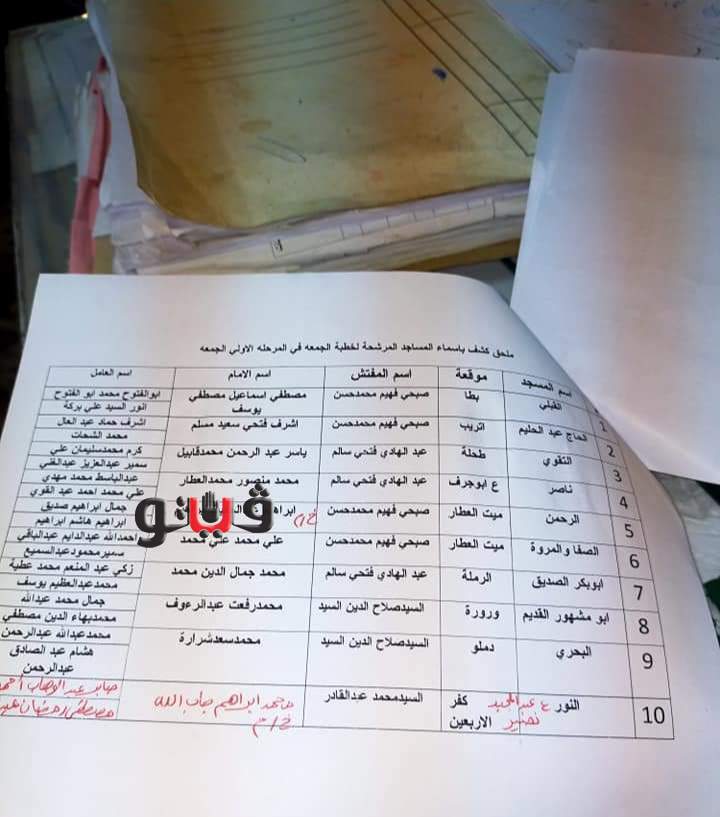 ملحق كشف باسماء المساجد المرشحة لخطبة الجمعه في المرحله الاولي الجمعه
اسم المسجد موقعة اسم المفتش اسم الامام اسم العامل
1 القبلي بطا صبحي فهيم محمدحسن مصطفي اسماعيل مصطفي يوسف ابوالفتوح محمد ابو الفتوح
انور السيد علي بركة
2 الحاج عبد الحليم اتريب صبحي فهيم محمدحسن اشرف فتحي سعيد مسلم اشرف حماد عبد العال
محمد الشحات
3 التقوي طحلة عبد الهادي فتحي سالم ياسر عبد الرحمن محمدقابيل كرم محمدسليمان علي
سمير عبدالعزيز عبدالغني
4 ناصر ع ابوجرف عبد الهادي فتحي سالم محمد منصور محمدالعطار عبدالباسط محمد مهدي
علي محمد احمد عبد القوي
5 الرحمن ميت العطار صبحي فهيم محمدحسن جمال ابراهيم صديق
ابراهيم هاشم ابراهيم
6 الصفا والمروة ميت العطار صبحي فهيم محمدحسن علي محمد علي محمد احمدالله عبدالدايم عبدالباقي
سميرمحمودعبدالسميع
7 ابوبكر الصديق الرملة عبد الهادي فتحي سالم محمد جمال الدين محمد زكي عبد المنعم محمد عطية
محمدعبدالعظيم يوسف
8 ابو مشهور القديم ورورة السيدصلاح الدين السيد محمدرفعت عبدالرءوف جمال محمد عبدالله
محمدبهاء الدين مصطفي
9 البحري دملو السيدصلاح الدين السيد محمدسعدشرارة محمدعبدالله عبدالرحمن
هشام عبد الصادق
عبدالرحمن
10 النور كفر الاربعين السيدمحمد عبدالقادر محمد ابراهيم جاب الله صابر عبد الوهاب
مصطفى رمضان
ڤيتو